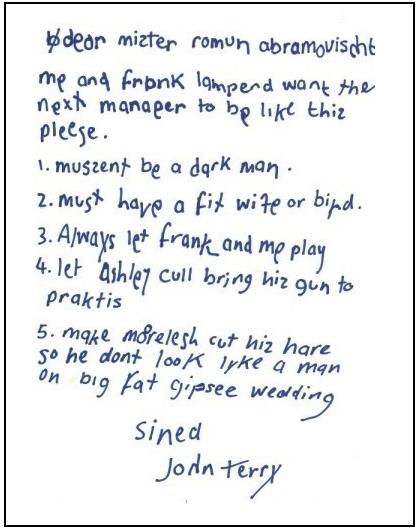 dear mizter romun abramovischt
me and frank lamperd want the
next manager to be like thiz
pleese.
1. muszent be a dark man.
2. must have a fit wife or bird.
3. Always let frank and me play
4. let Ashley cull bring hiz gun to
praktis
5. make morelesh cut hiz hare
so he dont look lyke a man
on big fat gipsee wedding
sined
John terry